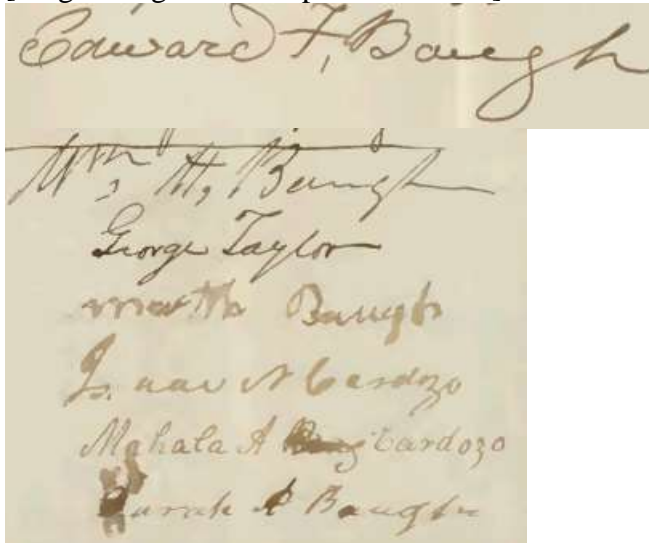 Edward F, Baugh
Wm, H, Baugh
George Taylor
Martha Baugh
Isaac N Cardozo
Mahala A Cardozo
Sarah A Baugh